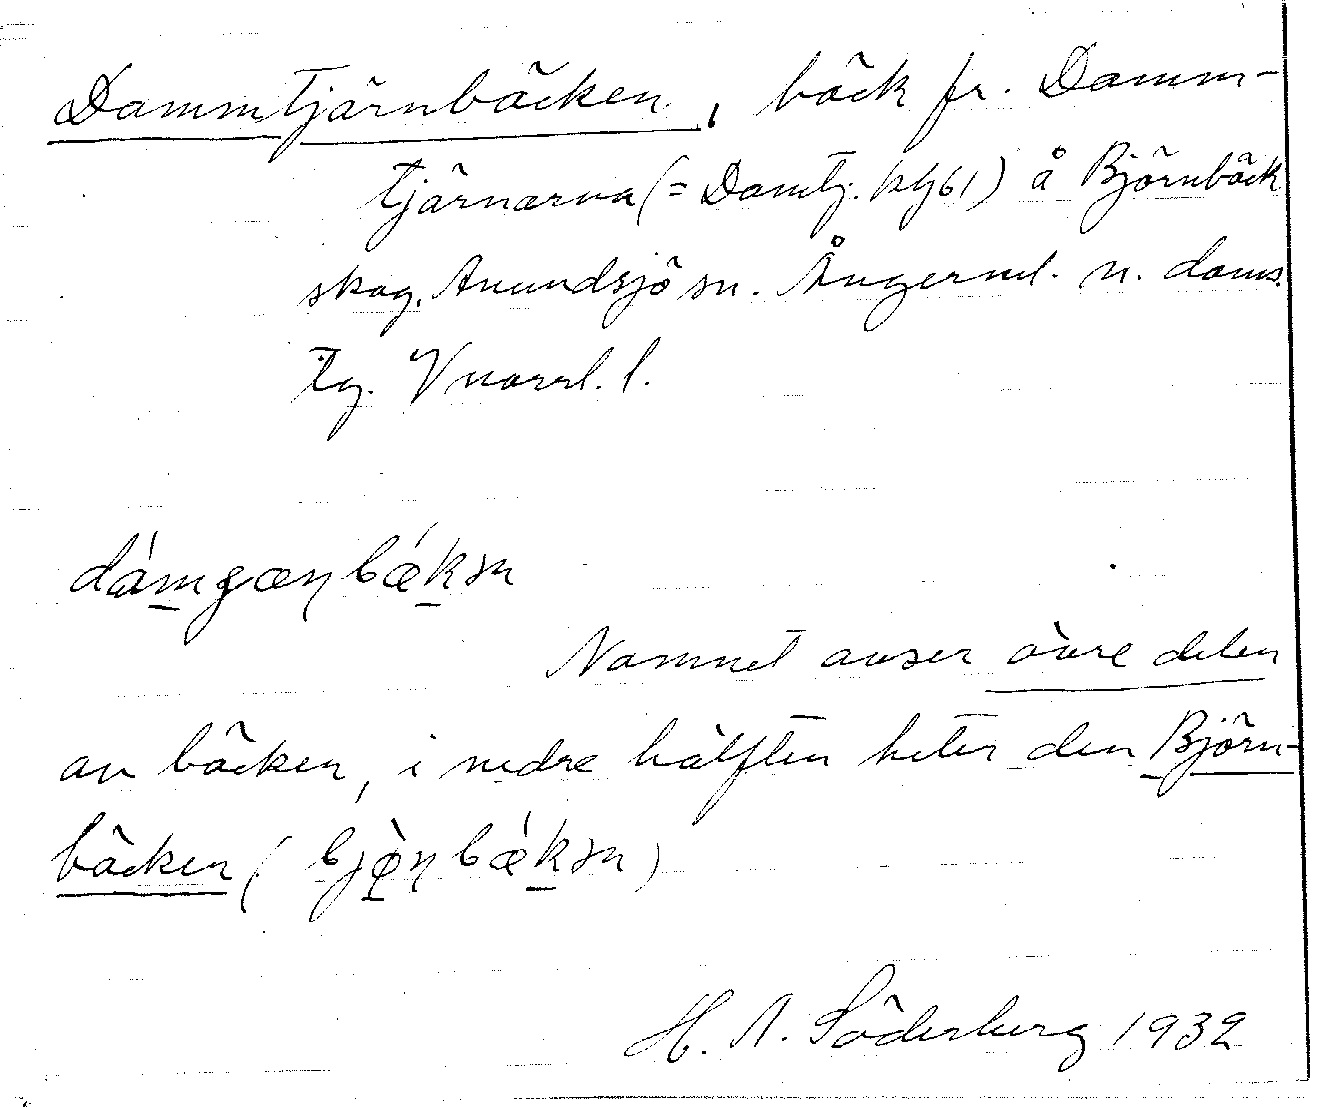 Dammtjärnbäcken, bäck fr. Damm-
tjärnarna (= Damtj. kbl 61) å Björnbäck
skog, Anundsjö sn. Ångerml. n. doms.
tg. Vnorrl. l.
dámgæŋbǽkən
Namnet avser övre delen
av bäcken, i nedre hälften heter den Björn-
bäcken (bjø̀ŋbǽkən)
H. A. Söderberg 1932